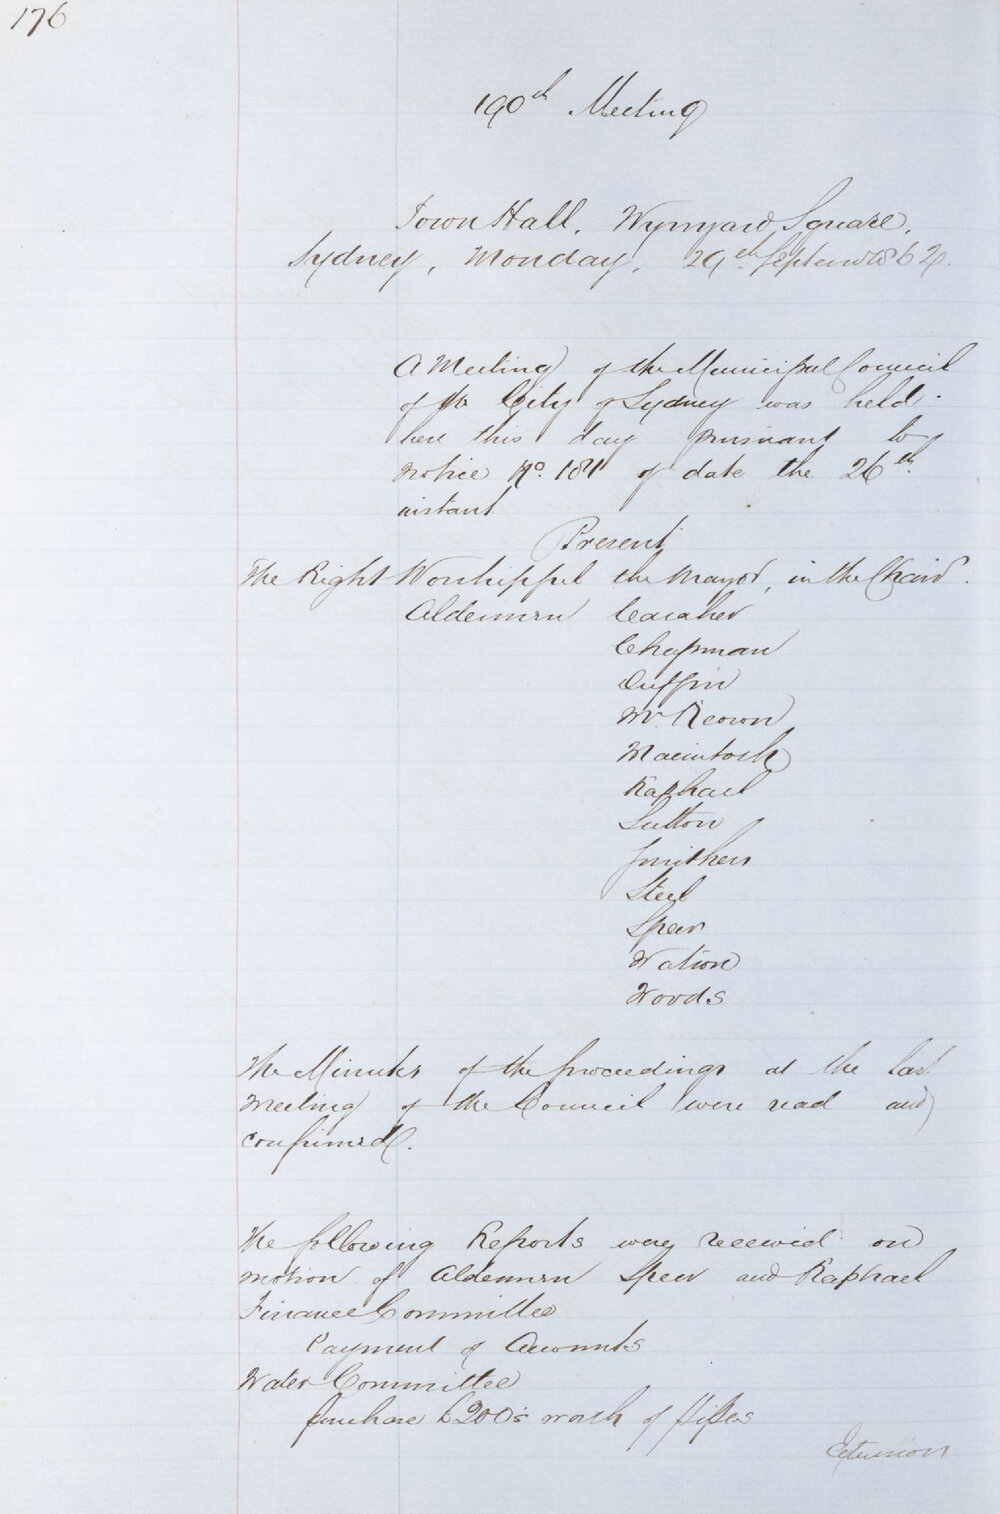 176
190th Meeting
Town Hall, Wynyard Square,
Sydney, Monday, 29th Septemr 1862.
A Meeting of the Municipal Council
of the City of Sydney was held
here this day pursuant to
notice No. 181 of date the 26th
instant
Present
The Right Worshipful the Mayor, in the Chair.
Aldermen Caraher
Chapman
Duffin
McKeown
Macintosh
Raphael
Sutton
Smithers
Steel
Speer
Watson
Woods
The Minutes of the proceedings at the last
Meeting of the Council were read and
confirmed.
The following Reports were received on
motion of Aldermen Speer and Raphael
Finance Committee
Payment of Accounts
Water Committee
Purchase £200's worth of Pipes
Extension